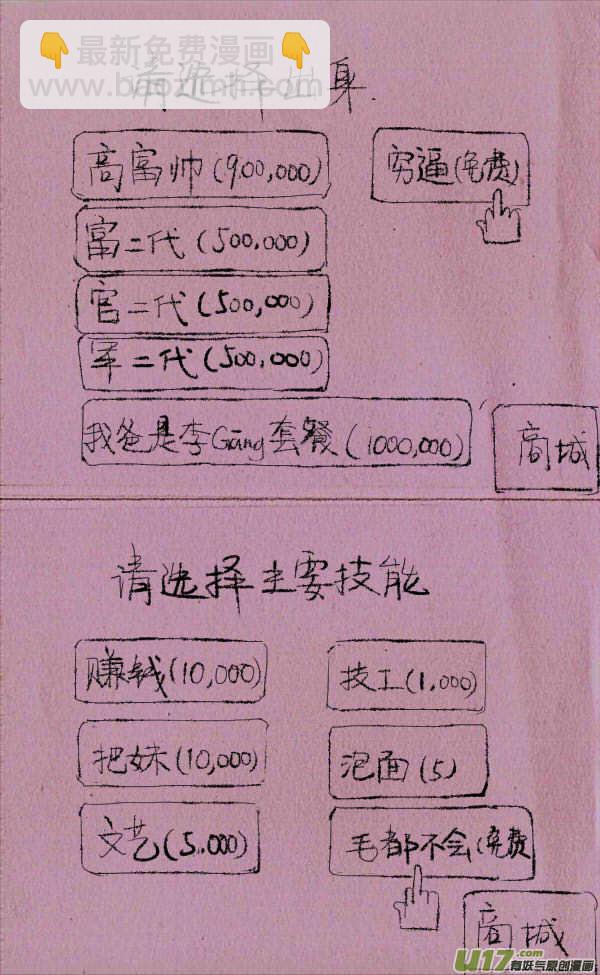 👇最新免费漫画👇
www.baozimh.com
请选择出身
高富帅(900,000)
穷逼(免费)
富二代(500,000)
官二代(500,000)
军二代(500,000)
我爸是李Gāng套餐(1000,000)
商城
请选择主要技能
赚钱(10,000)
技工(1,000)
把妹(10,000)
泡面(5)
文艺(5.000)
毛都不会(免费
商城
U17.com
有妖气原创漫画